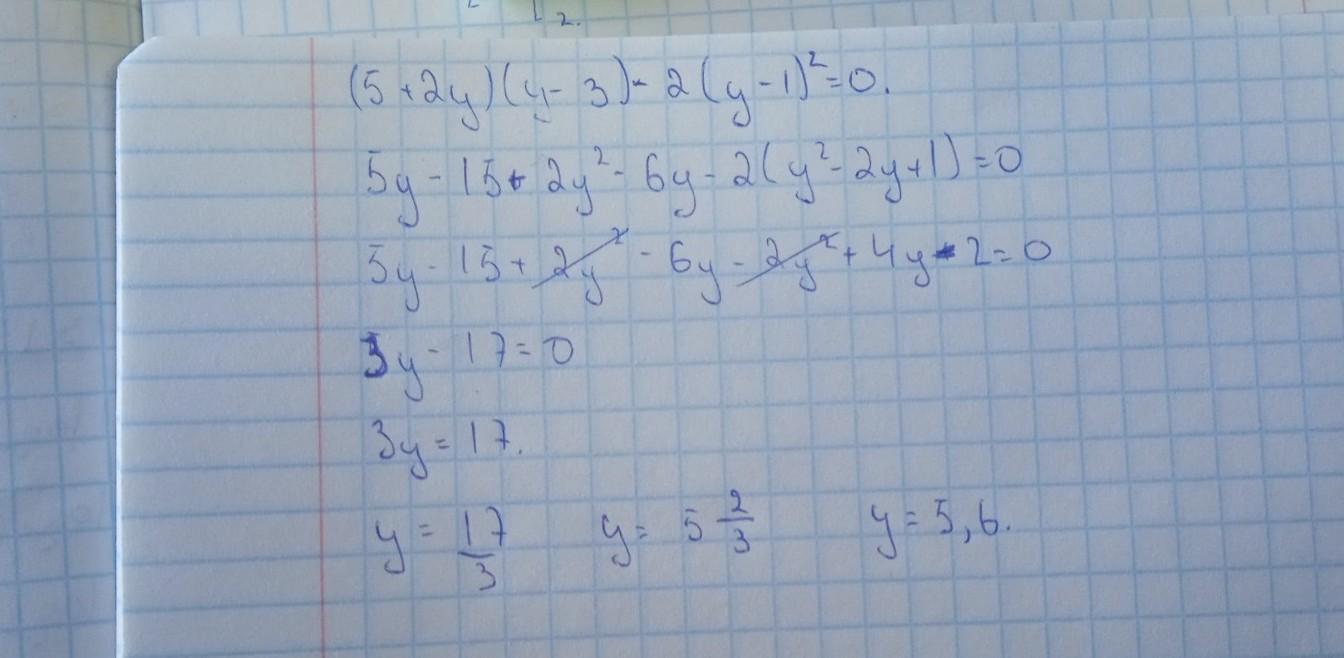 2.
(5+2y)(y-3)-2(y-1)²=0.
5y-15+2y²-6y-2(y²-2y+1)=0
5y-15+2y²-6y-2y²+4y-2=0
3y-17=0
3y=17.
y=17/3 y=5 2/3 y=5,6.